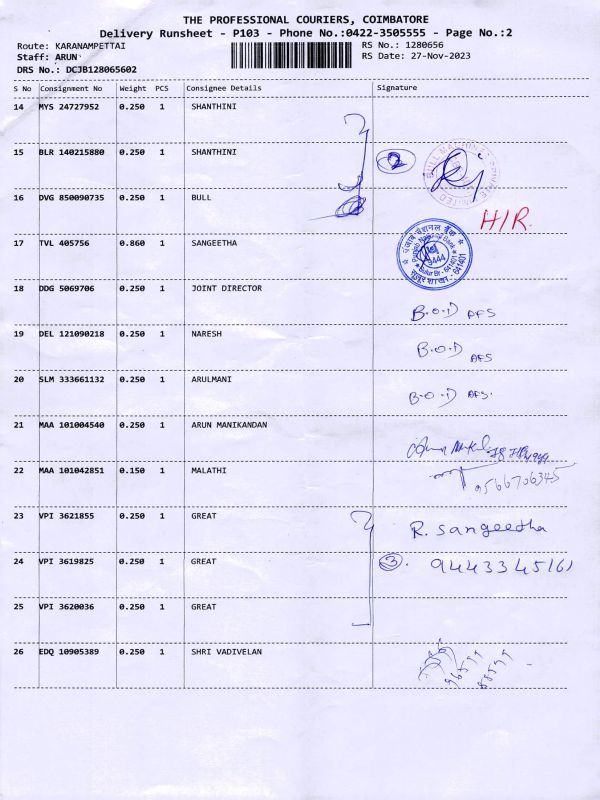 THE PROFESSIONAL COURIERS, COIMBATORE
Delivery Runsheet - P103 - Phone No.:0422-3505555 - Page No.:2
Route: KARANAMPETTAI RS No.: 1280656
Staff: ARUN RS Date: 27-Nov-2023
DRS No.: DCJB128065602
S No Consignment No Weight PCS Consignee Details Signature
14 MYS 24727952 0.250 1 SHANTHINI
15 BLR 140215880 0.250 1 SHANTHINI 2
16 DVG 850090735 0.250 1 BULL
H/R.
17 TVL 405756 0.860 1 SANGEETHA
पंजाब नैशनल बैंक
Punjab National Bank
9444
Sulur Br - 641401
सूलूर शाखा - 641401
18 DDG 5069706 0.250 1 JOINT DIRECTOR B.O.D AFS
19 DEL 121090218 0.250 1 NARESH B.O.D AFS
20 SLM 333661132 0.250 1 ARULMANI B.O.D AFS.
21 MAA 101004540 0.250 1 ARUN MANIKANDAN
22 MAA 101042851 0.150 1 MALATHI 9566706345
23 VPI 3621855 0.250 1 GREAT R. Sangeetha
24 VPI 3619825 0.250 1 GREAT 3. 9443345161
25 VPI 3620036 0.250 1 GREAT
26 EDQ 10905389 0.250 1 SHRI VADIVELAN